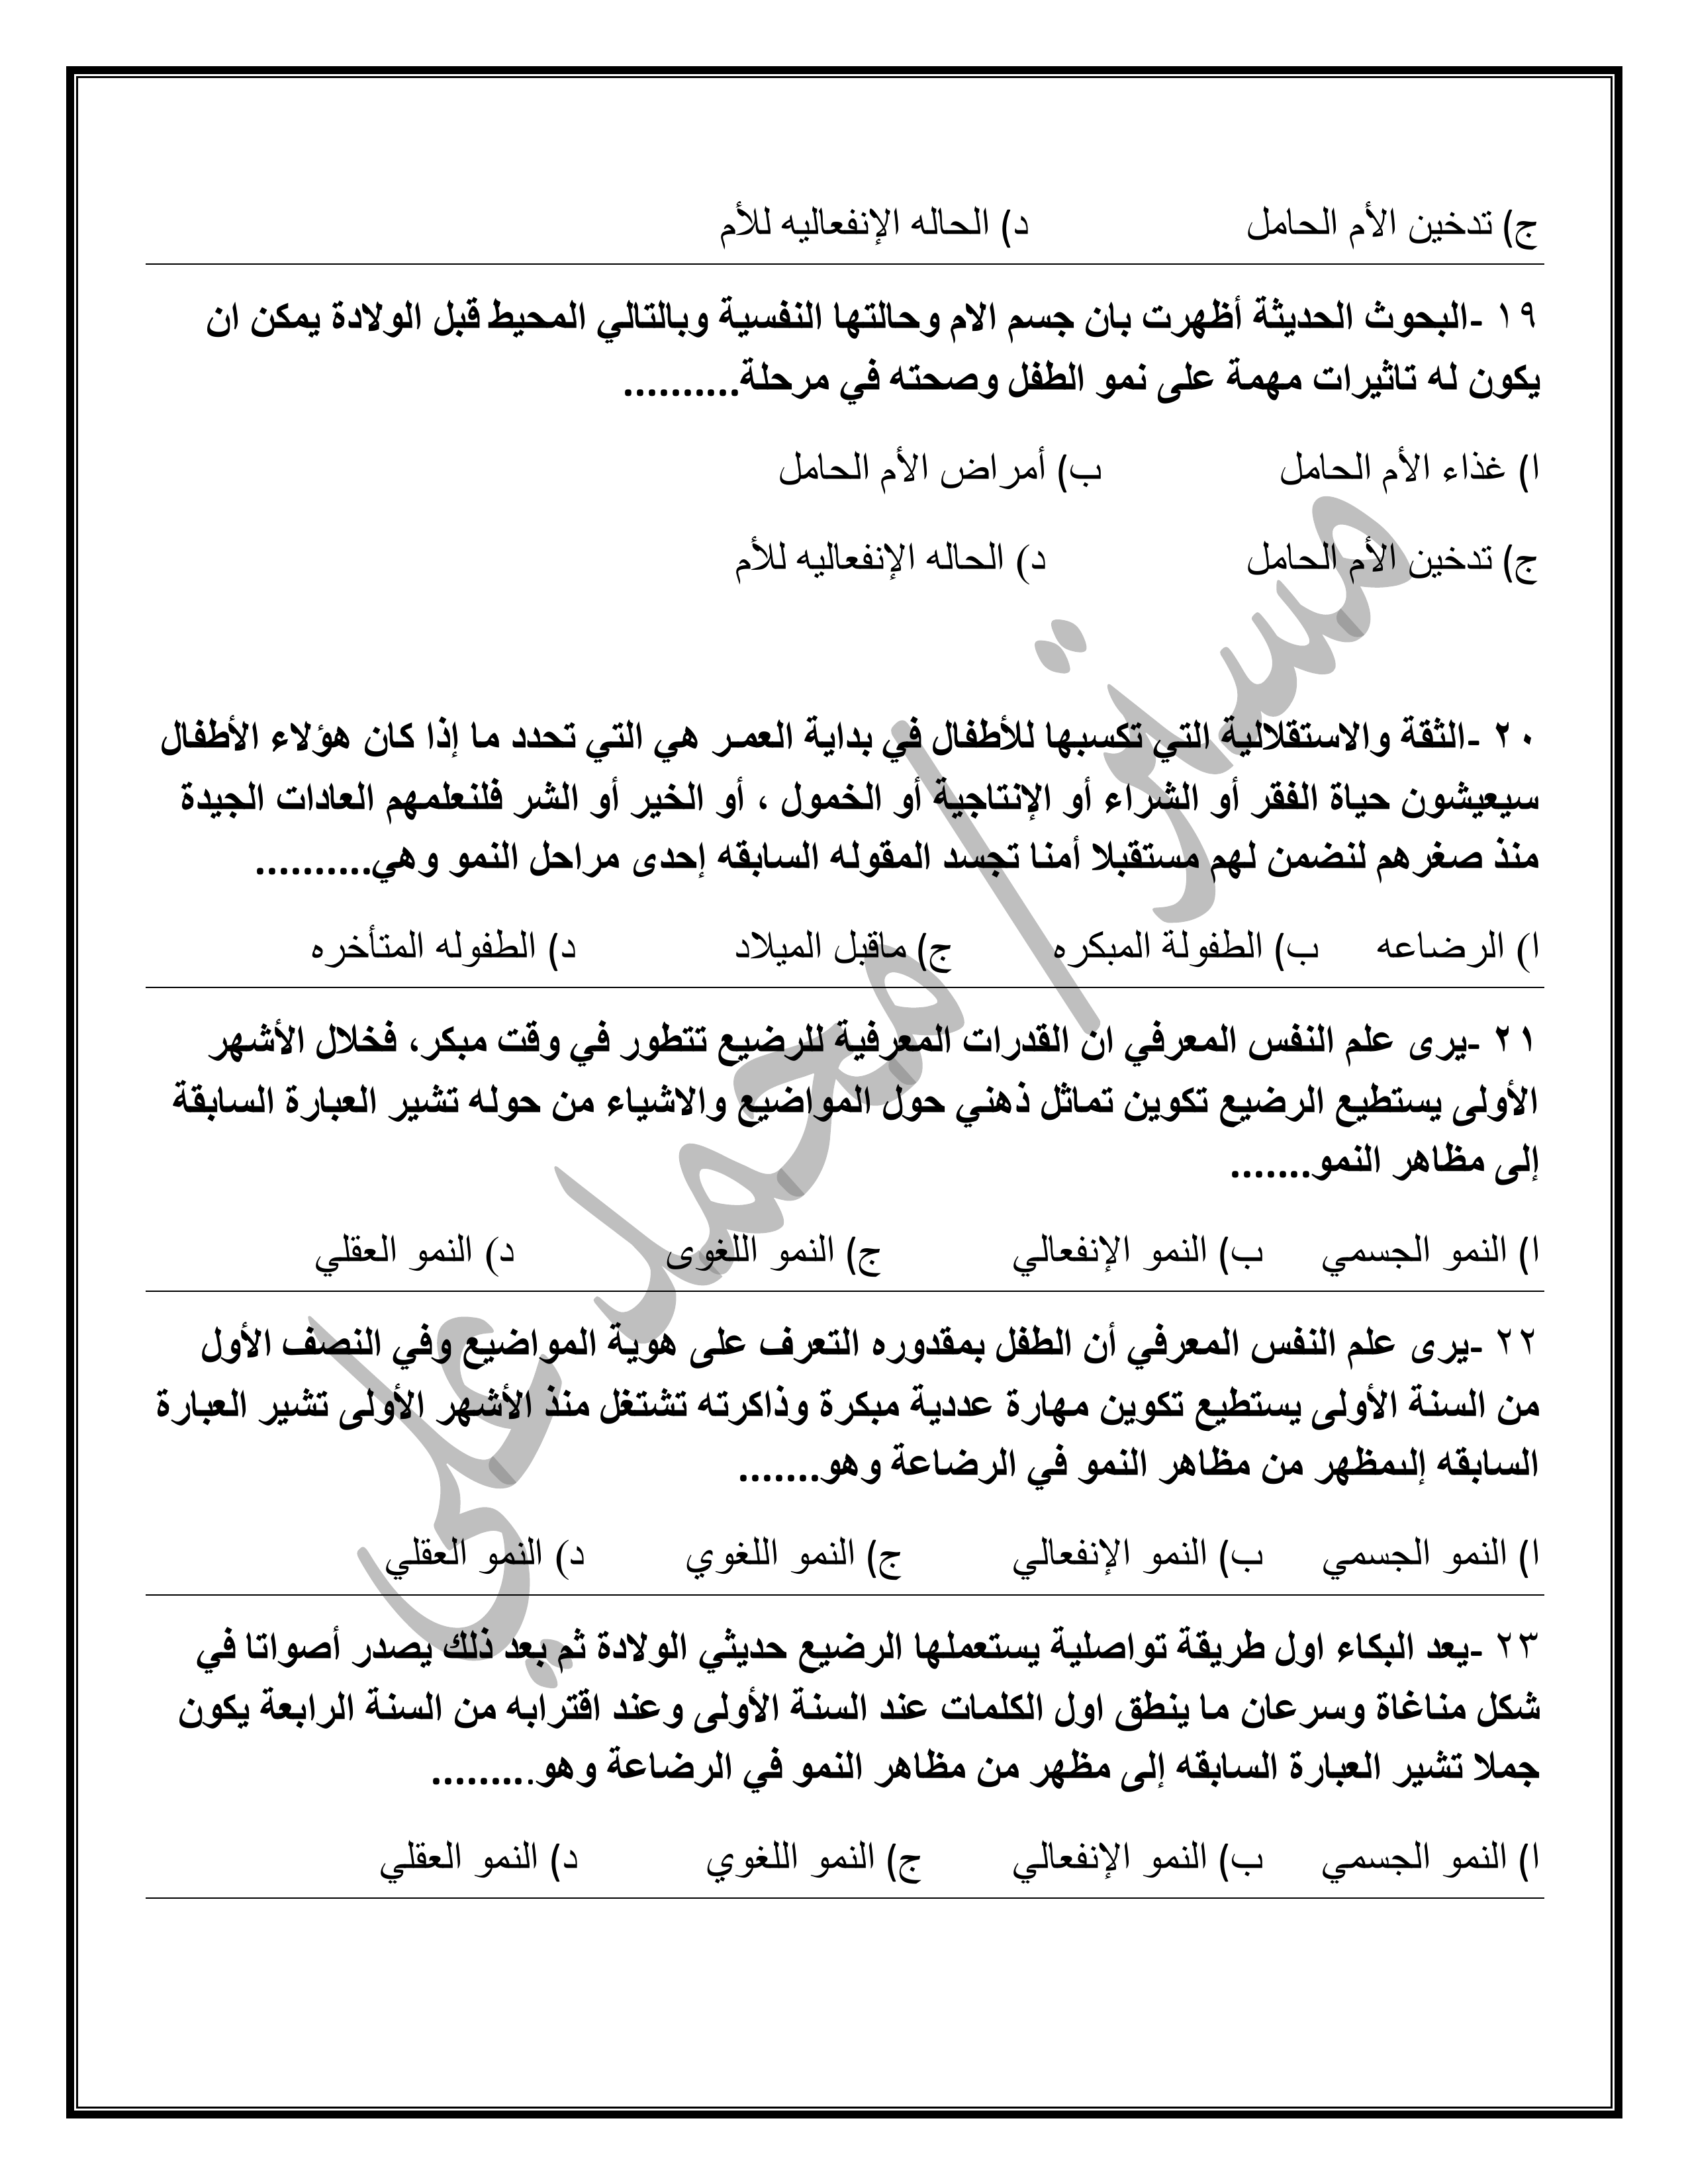 ج) تدخين الأم الحامل د) الحاله الإنفعاليه للأم
١٩ -البحوث الحديثة أظهرت بان جسم الام وحالتها النفسية وبالتالي المحيط قبل الولادة يمكن ان
يكون له تاثيرات مهمة على نمو الطفل وصحته في مرحلة..........
ا) غذاء الأم الحامل ب) أمراض الأم الحامل
ج) تدخين الأم الحامل د) الحاله الإنفعاليه للأم
٢٠ -الثقة والاستقلالية التي تكسبها للأطفال في بداية العمـر هي التي تحدد ما إذا كان هؤلاء الأطفال
سيعيشون حياة الفقر أو الشراء أو الإنتاجية أو الخمول ، أو الخير أو الشر فلنعلمهم العادات الجيدة
منذ صغرهم لنضمن لهم مستقبلا أمنا تجسد المقوله السابقه إحدى مراحل النمو وهي..........
ا) الرضاعه ب) الطفولة المبكره ج) ماقبل الميلاد د) الطفوله المتأخره
٢١ -يرى علم النفس المعرفي ان القدرات المعرفية للرضيع تتطور في وقت مبكر، فخلال الأشهر
الأولى يستطيع الرضيع تكوين تماثل ذهني حول المواضيع والاشياء من حوله تشير العبارة السابقة
إلى مظاهر النمو.......
ا) النمو الجسمي ب) النمو الإنفعالي ج) النمو اللغوى د) النمو العقلي
٢٢ -يرى علم النفس المعرفي أن الطفل بمقدوره التعرف على هوية المواضيع وفي النصف الأول
من السنة الأولى يستطيع تكوين مهارة عددية مبكرة وذاكرته تشتغل منذ الأشهر الأولى تشير العبارة
السابقه إلىمظهر من مظاهر النمو في الرضاعة وهو.......
ا) النمو الجسمي ب) النمو الإنفعالي ج) النمو اللغوي د) النمو العقلي
٢٣ -يعد البكاء اول طريقة تواصلية يستعملها الرضيع حديثي الولادة ثم بعد ذلك يصدر أصواتا في
شكل مناغاة وسرعان ما ينطق اول الكلمات عند السنة الأولى وعند اقترابه من السنة الرابعة يكون
جملا تشير العبارة السابقه إلى مظهر من مظاهر النمو في الرضاعة وهو.........
ا) النمو الجسمي ب) النمو الإنفعالي ج) النمو اللغوي د) النمو العقلي
مستر/ محمد علي